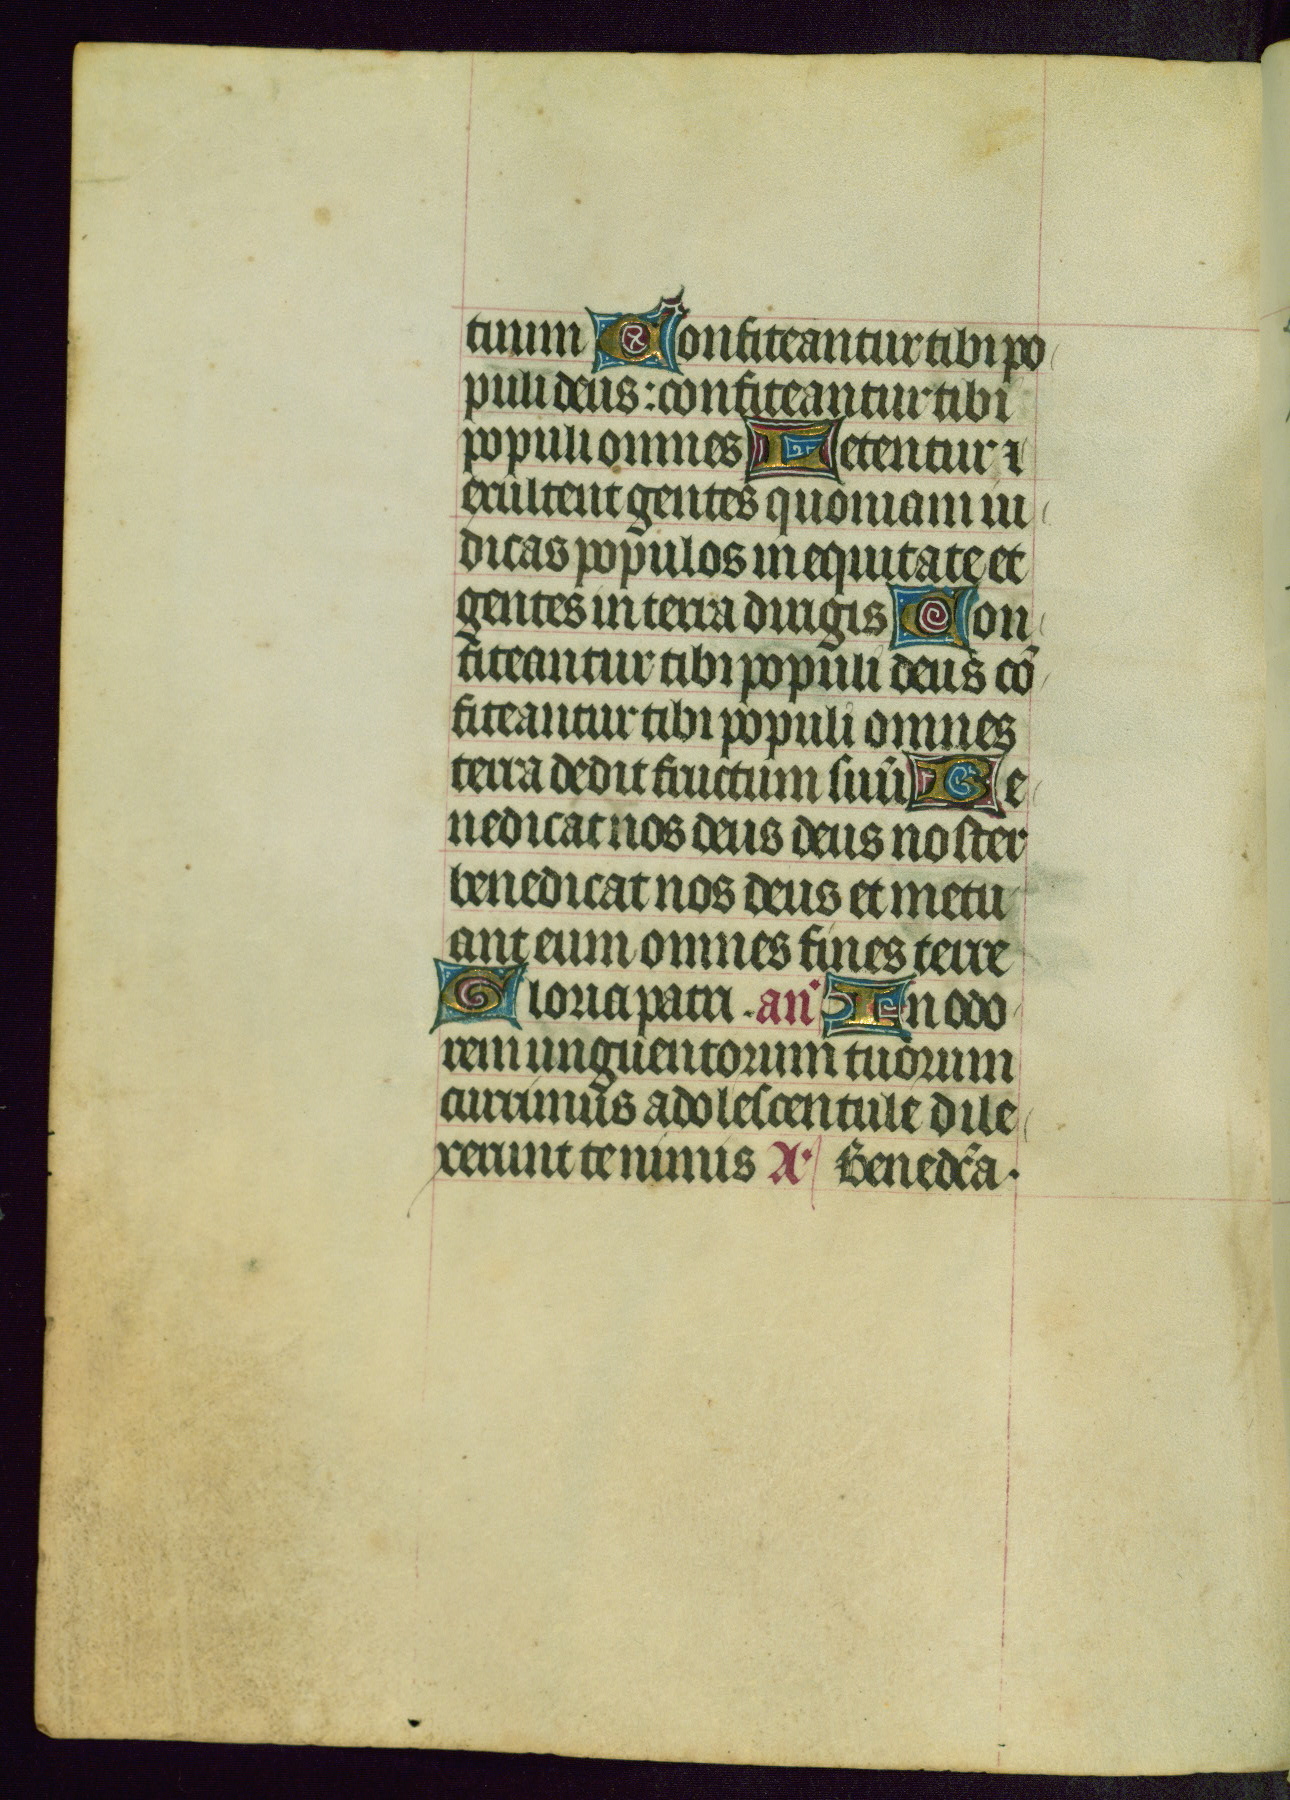 tuum Confiteantur tibi po
puli deus: confiteantur tibi
populi omnes Letentur ⁊
exultent gentes quoniam iu
dicas populos in equitate et
gentes in terra dirigis Con
fiteantur tibi populi deus cō
fiteantur tibi populi omnes
terra dedit fructum suū Be
nedicat nos deus deus noster
benedicat nos deus et metu
ant eum omnes fines terre
Gloria patri . an̄ In odo
rem unguentorum tuorum
currimus adolescentule dile
xerunt te nimis A Benedc̄a.